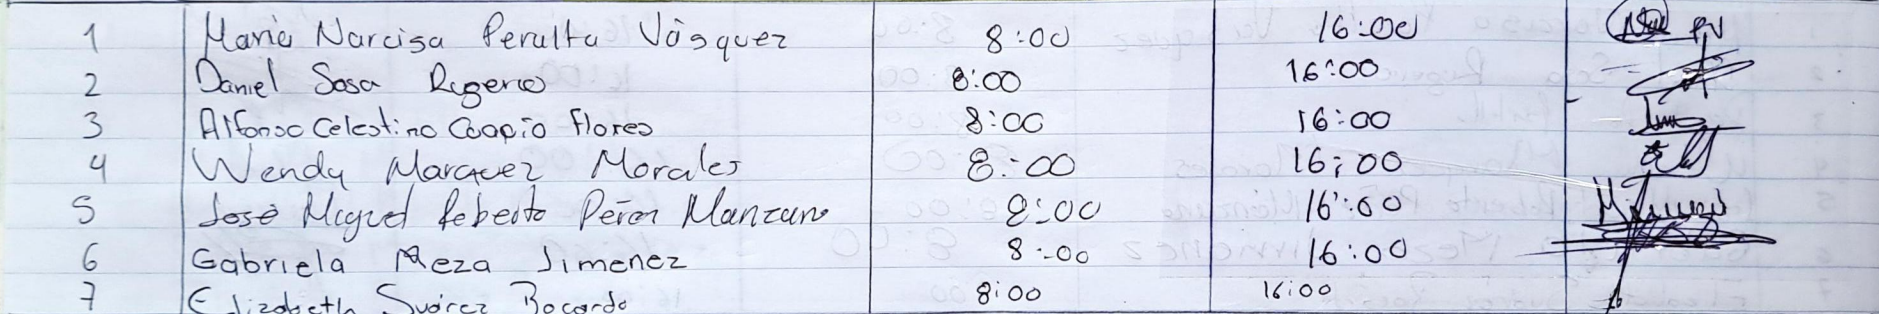 1 María Narcisa Peralta Vásquez 8:00 16:00 PV
2 Daniel Sosa Rogerio 8:00 16:00
3 Alfonso Celestino Flores 8:00 16:00
4 Wendy Marquez Morales 8:00 16:00
5 José Miguel Roberto Manzano 8:00 16:00
6 Gabriela Meza Jimenez 8:00 16:00
7 Elizabeth Suárez Bocardo 8:00 16:00